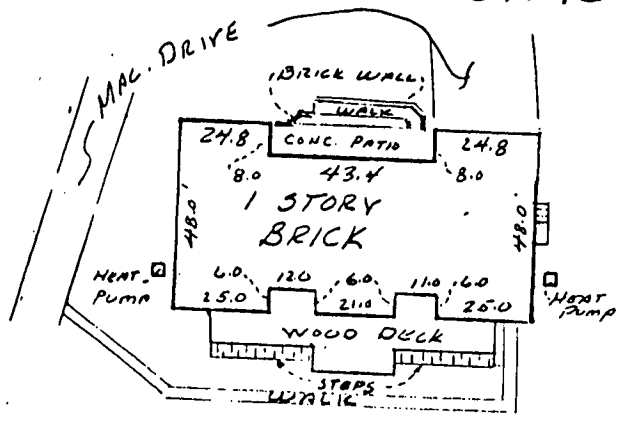 MAC. DRIVE
BRICK WALL
WALK
CONC. PATIO
24.8
24.8
8.0
43.4
8.0
1 STORY
BRICK
48.0'
48.0
HEAT
PUMP
6.0
12.0
6.0
11.0
6.0
25.0
21.0
25.0
HEAT
PUMP
WOOD DECK
STEPS
WALK